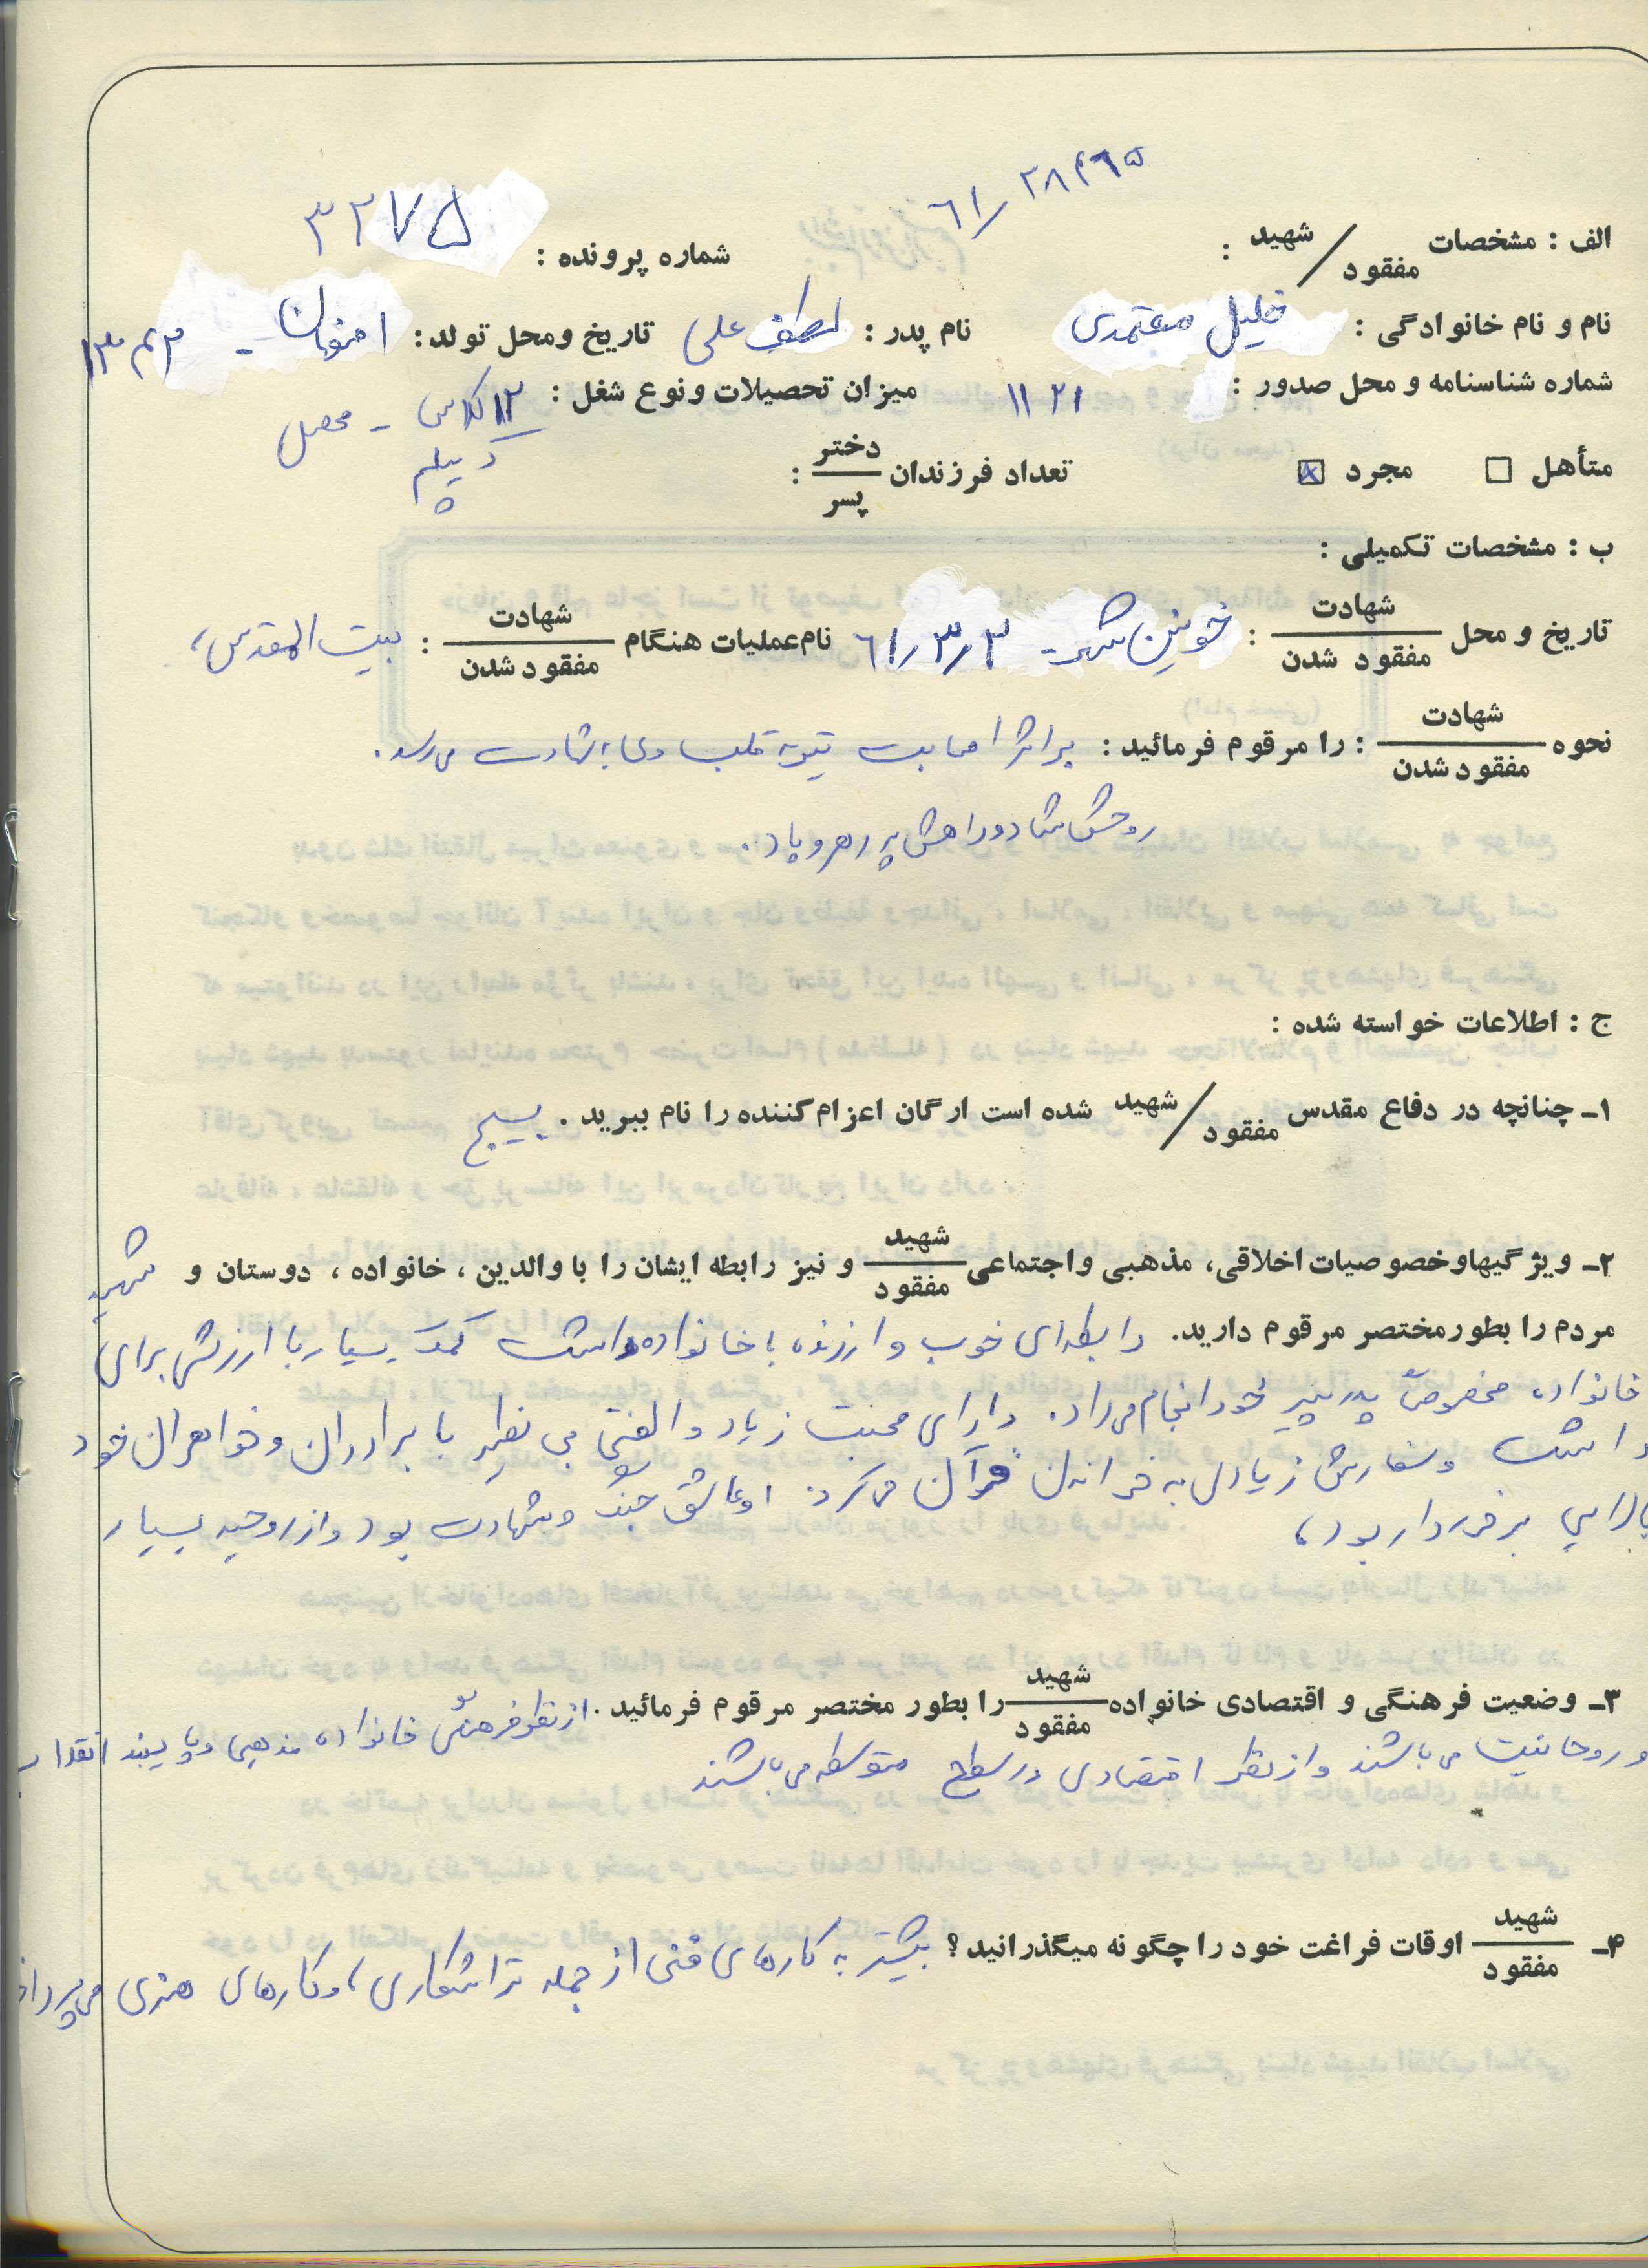 ۶۱/۲۸۴۶۵
الف : مشخصات شهید / مفقود :
شماره پرونده : ۳۲۷۵
نام و نام خانوادگی : خلیل معتمدی نام پدر : لطف علی تاریخ ومحل تولد : اصفهان - ۱۳۴۲
شماره شناسنامه و محل صدور : ۱۱۲۱ میزان تحصیلات ونوع شغل : ۱۲ کلاس - محصل
دیپلم
متأهل □ مجرد ☒ تعداد فرزندان دختر / پسر :
ب : مشخصات تکمیلی :
تاریخ و محل شهادت / مفقود شدن : خونین شهر - ۶۱/۳/۲ نام عملیات هنگام شهادت / مفقود شدن : بیت المقدس،
نحوه شهادت / مفقود شدن : را مرقوم فرمائید : بر اثر اصابت تیر به قلب وی به شهادت می رسد.
روحش شاد و راهش پر رهرو باد.
ج : اطلاعات خواسته شده :
۱ـ چنانچه در دفاع مقدس شهید / مفقود شده است ارگان اعزام کننده را نام ببرید . بسیج
۲ـ ویژگیها و خصوصیات اخلاقی، مذهبی و اجتماعی شهید / مفقود و نیز رابطه ایشان را با والدین ، خانواده ، دوستان و شهید
مردم را بطور مختصر مرقوم دارید. رابطه ای خوب و ارزنده با خانواده داشت کمک بسیار با ارزشی برای
خانواده مخصوصاً پدر پیر خود انجام می داد. دارای محبت زیاد و الفتی بی نظیر با برادران و خواهران خود
داشت و سفارش زیادی به خواندن قرآن می کرد. او عاشق جنگ و شهادت بود و از روحیه بسیار
بالایی برخوردار بود،
۳ـ وضعیت فرهنگی و اقتصادی خانواده شهید / مفقود را بطور مختصر مرقوم فرمائید . از نظر فرهنگی خانواده مذهبی و پایبند انقلاب
و روحانیت می باشند و از نظر اقتصادی در سطح متوسطه می باشند
۴ـ شهید / مفقود اوقات فراغت خود را چگونه میگذرانید؟ بیشتر به کارهای فنی از جمله تراشکاری، و کارهای هنری می پرداخت